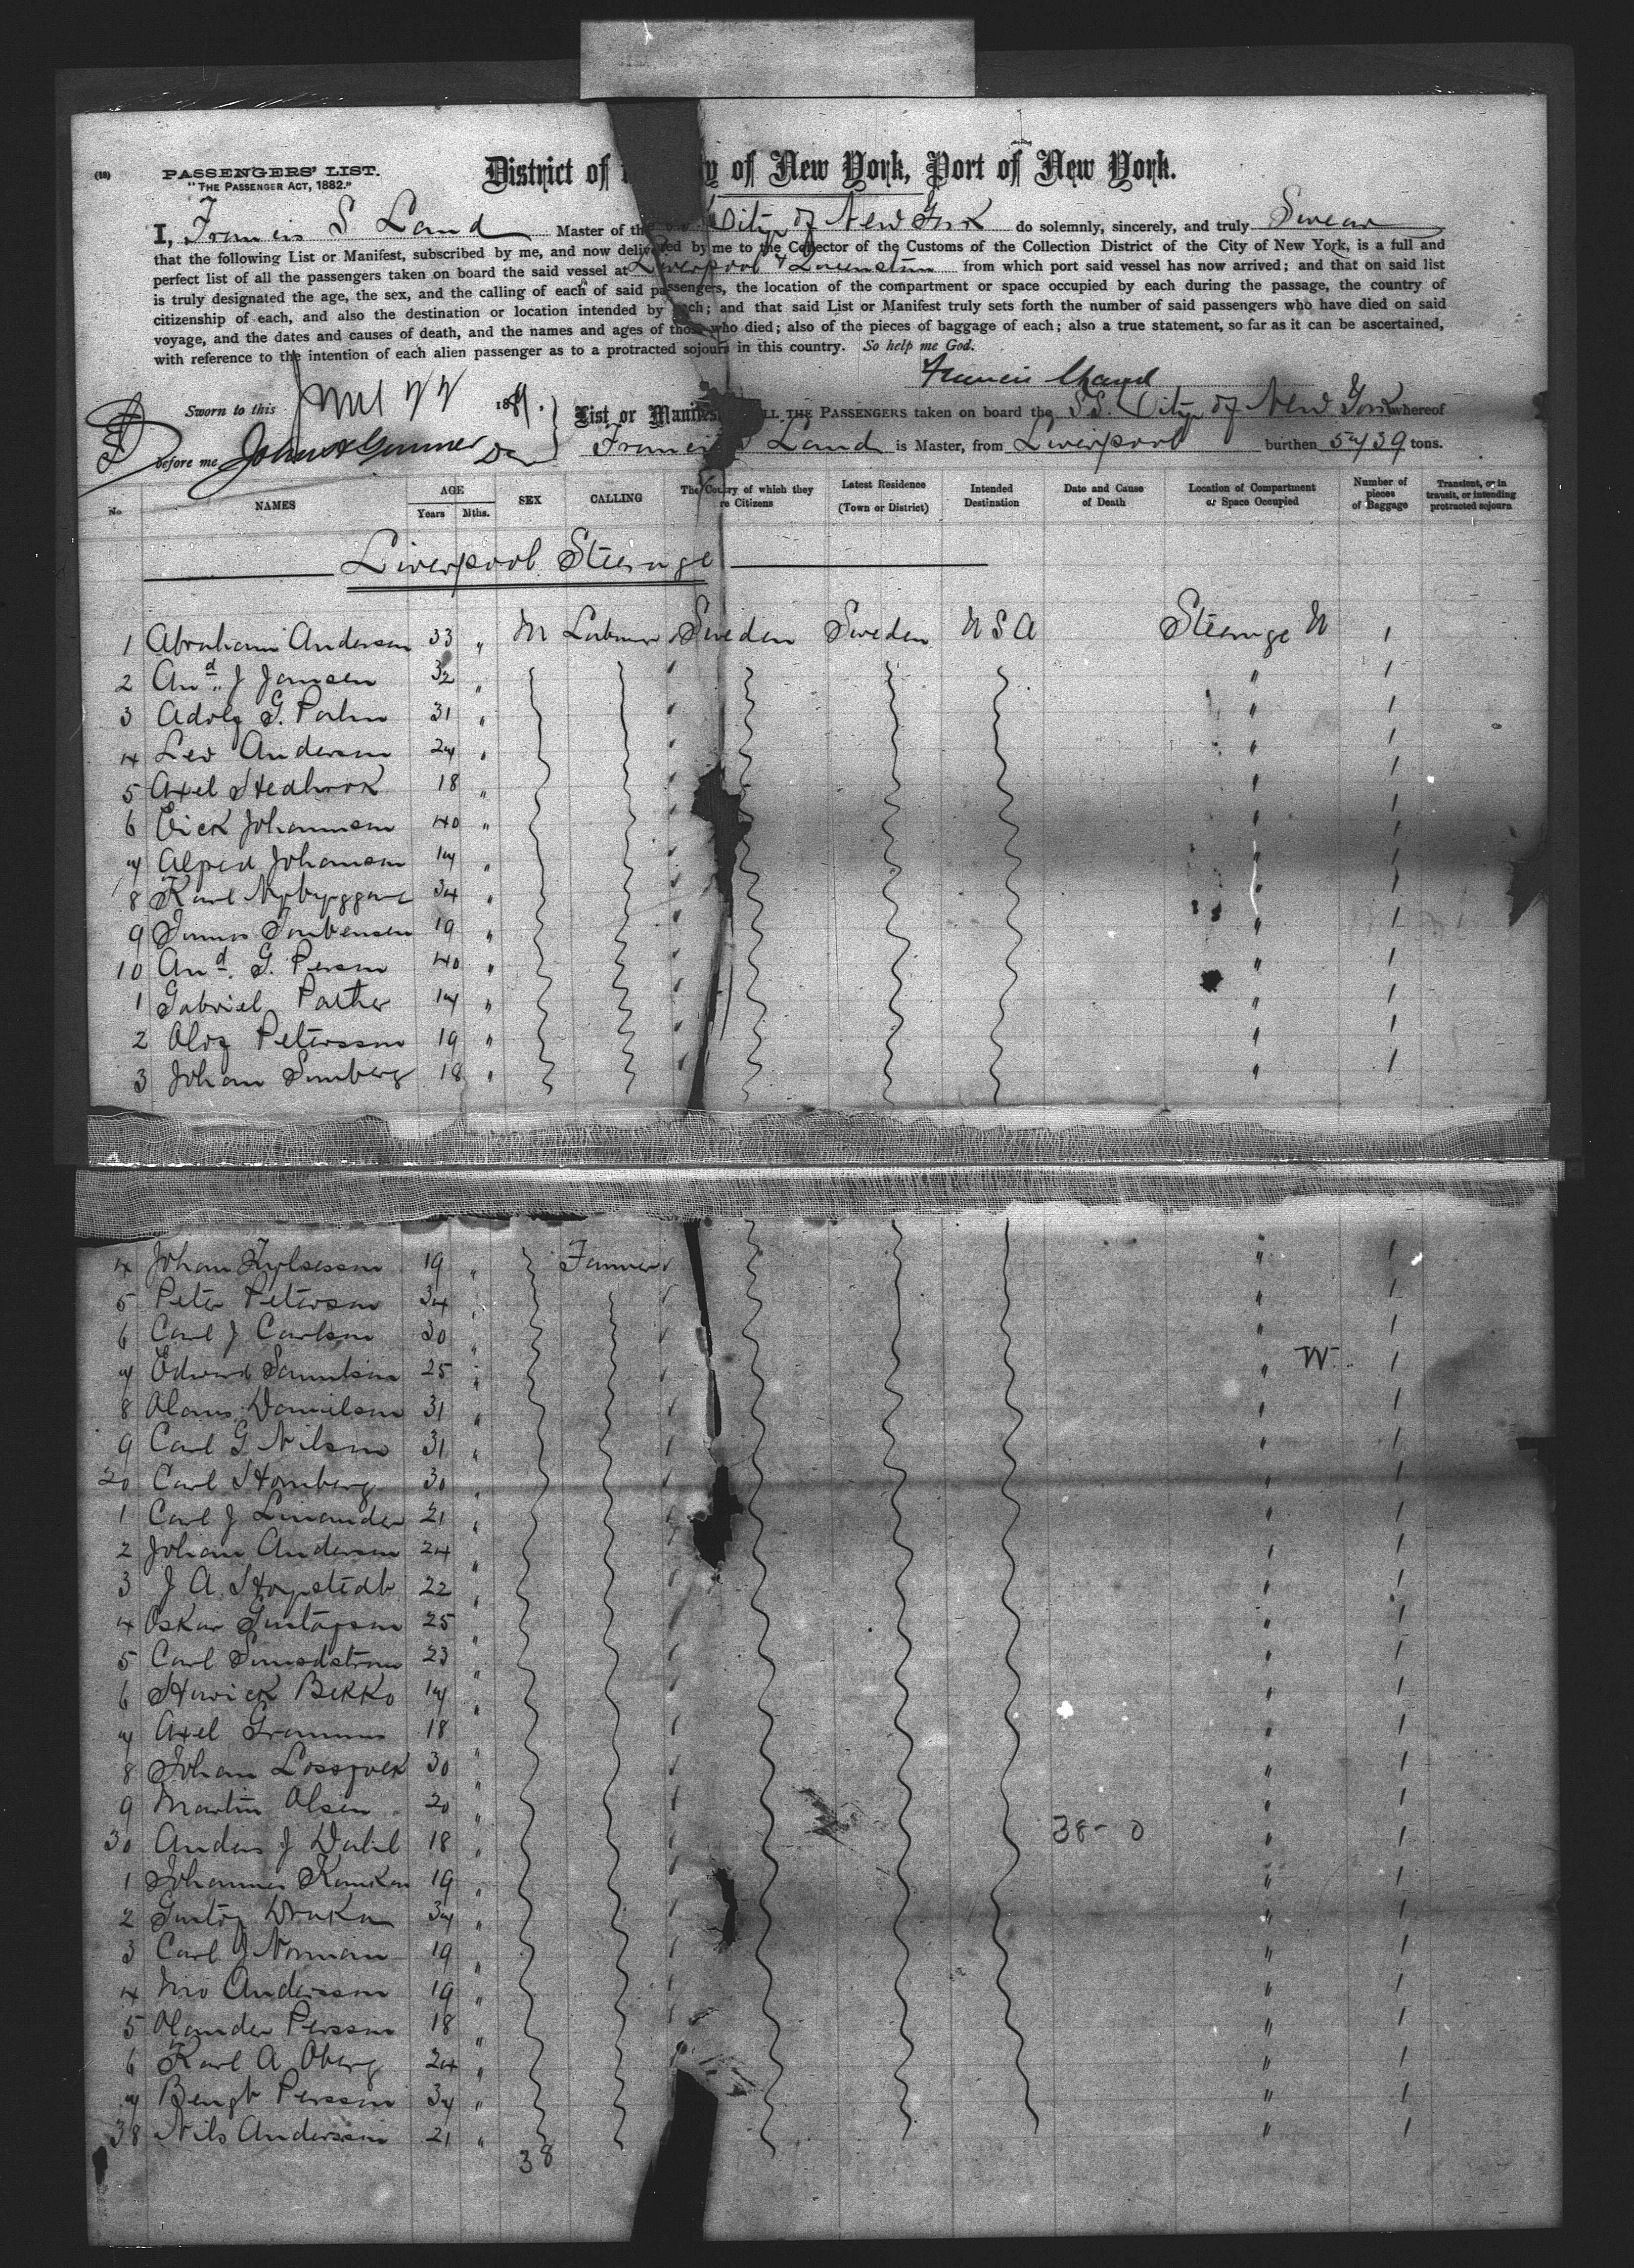 (18)
PASSENGERS' LIST.
"THE PASSENGER ACT, 1882."
District of y of New York, Port of New York.
I, Francis S Land Master of the City of New York do solemnly, sincerely, and truly Swear
that the following List or Manifest, subscribed by me, and now delivered by me to the Collector of the Customs of the Collection District of the City of New York, is a full and
perfect list of all the passengers taken on board the said vessel at Liverpool & Queenstown from which port said vessel has now arrived; and that on said list
is truly designated the age, the sex, and the calling of each of said passengers, the location of the compartment or space occupied by each during the passage, the country of
citizenship of each, and also the destination or location intended by each; and that said List or Manifest truly sets forth the number of said passengers who have died on said
voyage, and the dates and causes of death, and the names and ages of those who died; also of the pieces of baggage of each; also a true statement, so far as it can be ascertained,
with reference to the intention of each alien passenger as to a protracted sojourn in this country. So help me God.
Sworn to this 188
List or Manifest ALL THE PASSENGERS taken on board the S.S. City of New York whereof
before me
Francis S Land is Master, from Liverpool burthen 5739 tons.
No NAMES AGE Years Mths. SEX CALLING The Country of which they are Citizens Latest Residence (Town or District) Intended Destination Date and Cause of Death Location of Compartment or Space Occupied Number of pieces of Baggage Transient, or in transit, or intending protracted sojourn
Liverpool Steerage
1 Abraham Anderson 33 " M Labourer Sweden Sweden U S A Steerage 1
2 And. J Jansen 32 " " 1
3 Adolf G. Palm 31 " " 1
4 Leo Anderson 27 " " 1
5 Axel 18 " " 1
6 Erick Johannson 40 " " 1
7 Alfred Johanson 17 " " 1
8 Karl 34 " " 1
9 19 " " 1
10 And. G. Person 40 " " 1
1 Gabriel 17 " " 1
2 Olof Petersson 19 " " 1
3 Johan 18 " " 1
4 Johan 19 " Farmer " 1
5 Peter Peterson 34 " " 1
6 Carl J Carlson 30 " " 1
7 Edward Samulson 25 " " W. 1
8 Olaus Danielson 31 " " 1
9 Carl G Nilson 31 " " 1
20 Carl Homberg 30 " " 1
1 Carl J Linander 21 " " 1
2 Johan Anderson 24 " " 1
3 J A 22 " " 1
4 Oskar Gustafson 25 " " 1
5 Carl 23 " " 1
6 Bekko 17 " " 1
7 Axel 18 " " 1
8 Johan 30 " " 1
9 Martin Olsen 20 " " 1
38 - 0
30 Anders J Dahl 18 " " 1
1 Johannes 19 " " 1
2 Gustaf 37 " " 1
3 Carl J Norman 19 " " 1
4 Andersson 19 " " 1
5 Olander Persson 18 " " 1
6 Karl A Oberg 24 " " 1
7 Bengt Persson 37 " " 1
38 Nils Andersson 21 " " 1
38